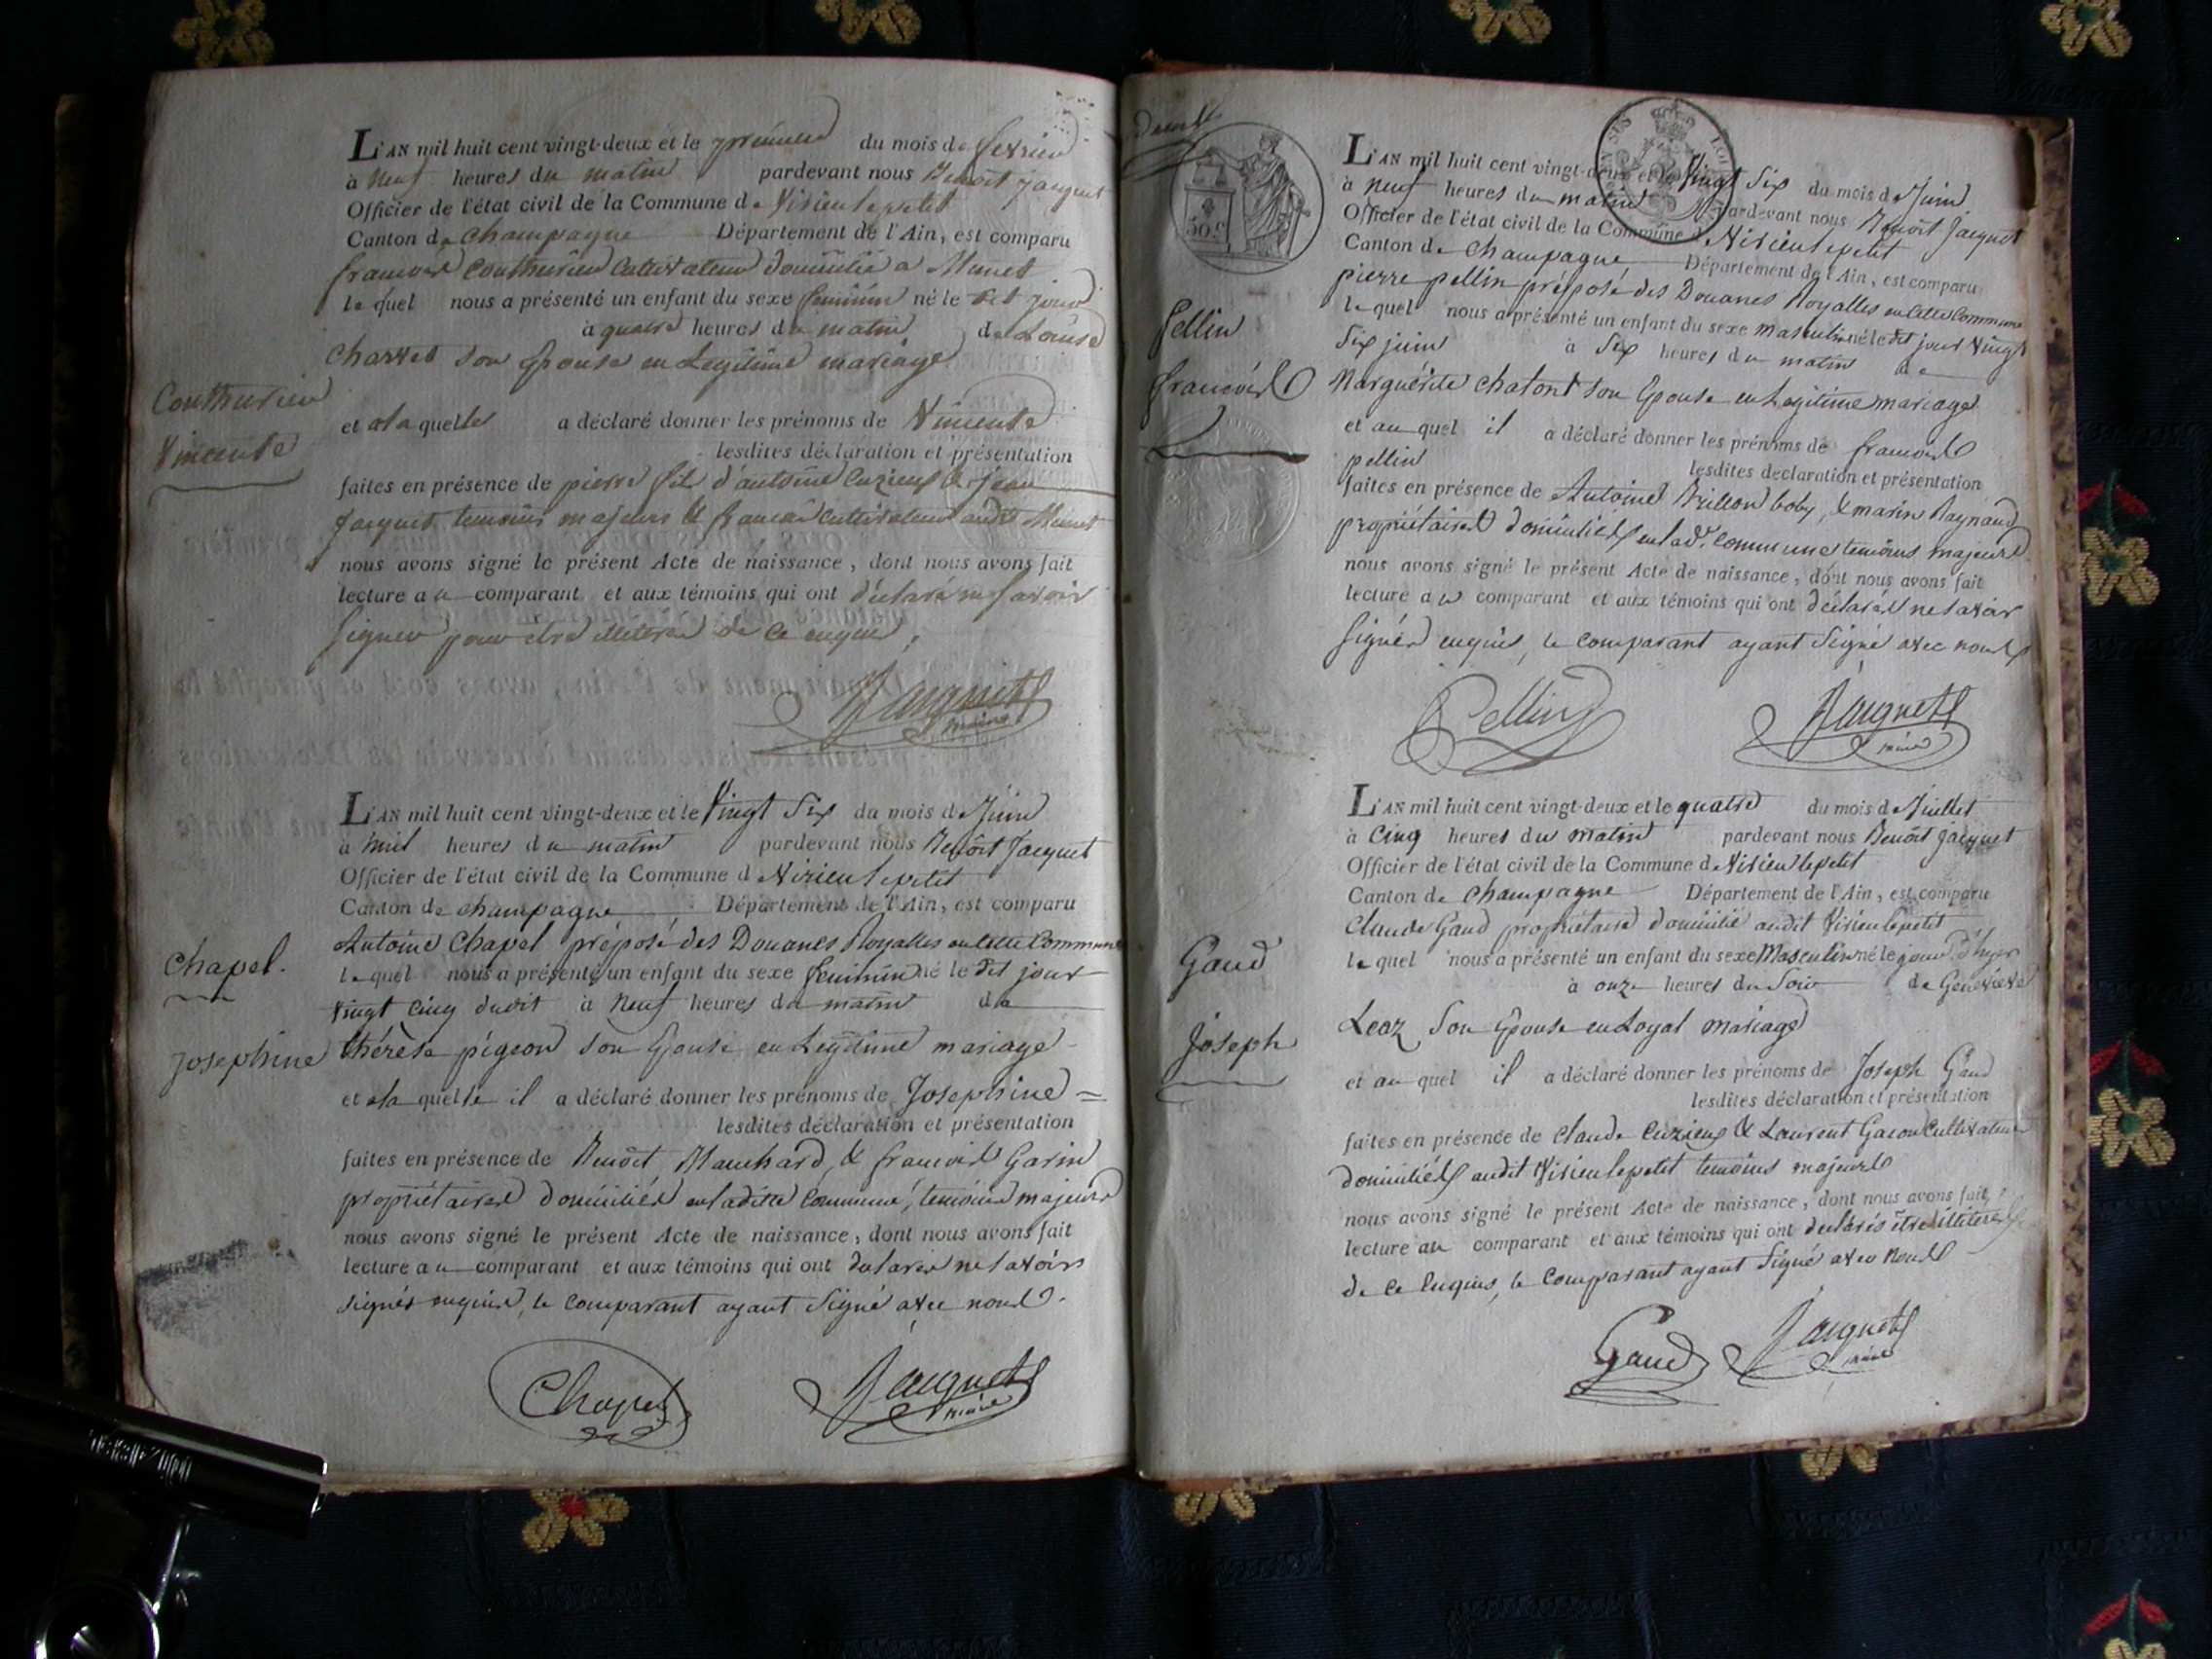 L'AN mil huit cent vingt-deux et le premier du mois de fevrier
à neuf heures du matin pardevant nous Benoit jacquet
Officier de l'état civil de la Commune de Virieulepetit
Canton de Champagne Département de l'Ain, est comparu
francois Couthurier Cultivateur domicilié a Munet
le quel nous a présenté un enfant du sexe feminin né le dit jour
à quatre heures du matin de Louise
Charvet son Epouse en Legitime mariage
Couthurier
Vincente
et ala quelle a déclaré donner les prénoms de Vincente
lesdites déclaration et présentation
faites en présence de pierre fils d'antoine Cuzieux & jean
jacquet temoins majeurs & francais Cultivateurs audit Munet
nous avons signé le présent Acte de naissance, dont nous avons fait
lecture au comparant et aux témoins qui ont déclaré ne savoir
signer pour etre illiteré de ce enquis,
Jacquet
maire
L'AN mil huit cent vingt-deux et le Vingt Six du mois de Juin
à huit heures du matin pardevant nous Benoît Jacquet
Officier de l'état civil de la Commune d Virieulepetit
Canton de Champagne Département de l'Ain, est comparu
Antoine Chapel préposé des Douanes Royalles en Cette Commune
le quel nous a présenté un enfant du sexe feminin né le dit jour
Vingt Cinq dudit à Neuf heures du matin de
Chapel.
Josephine
thérèse pigeon son Epouse en Legitime mariage
et ala quelle il a déclaré donner les prénoms de Josephine =
lesdites déclaration et présentation
faites en présence de Benoît Blanchard, & francois Garin
propriétaires domiciliés en ladite Commune, temoins majeurs
nous avons signé le présent Acte de naissance, dont nous avons fait
lecture au comparant et aux témoins qui ont declarés ne savoirs
signés enquis, le Comparant ayant Signé avec nous.
Chapel
Jacquet
maire
50 C
L'AN mil huit cent vingt-deux et le Vingt Six du mois de Juin
à neuf heures du matin pardevant nous Benoît Jacquet
Officier de l'état civil de la Commune d Virieulepetit
Canton de Champagne Département de l'Ain, est comparu
pierre pellin préposé des Douanes Royalles en Cette Commune
le quel nous a présenté un enfant du sexe masculin né le dit jour Vingt
Six juin à Six heures du matin de
pellin
francois
Marguérite Chatont son Epouse en Legitime mariage
et au quel il a déclaré donner les prénoms de francois
pellin lesdites déclaration et présentation
faites en présence de Antoine Brillon boby, & marin Raynaud
propriétaires domiciliés en lad. Commune temoins majeurs
nous avons signé le présent Acte de naissance, dont nous avons fait
lecture au comparant et aux témoins qui ont déclarés ne savoir
Signér enquis, le Comparant ayant Signé avec nous
Pellin
Jacquet
maire
L'AN mil huit cent vingt-deux et le quatre du mois de Juillet
à Cinq heures du matin pardevant nous Benoît jacquet
Officier de l'état civil de la Commune d Virieulepetit
Canton de Champagne Département de l'Ain, est comparu
Claude Gaud propriétaire domicilié audit Virieulepetit
le quel nous a présenté un enfant du sexe Masculin né le jour d'hyer
à onze heures du Soir de Geneviéve
Gaud
Joseph
Leaz Son Epouse en Loyal mariage
et au quel il a déclaré donner les prénoms de Joseph Gaud
lesdites déclaration et présentation
faites en présence de Claude Cuzieux & Laurent Gacon Cultivateurs
domiciliés audit Virieulepetit temoins majeurs
nous avons signé le présent Acte de naissance, dont nous avons fait
lecture au comparant et aux témoins qui ont declarés être illiterés
de Ce Enquis, le Comparant ayant Signé avec nous
Gaud
Jacquet
maire